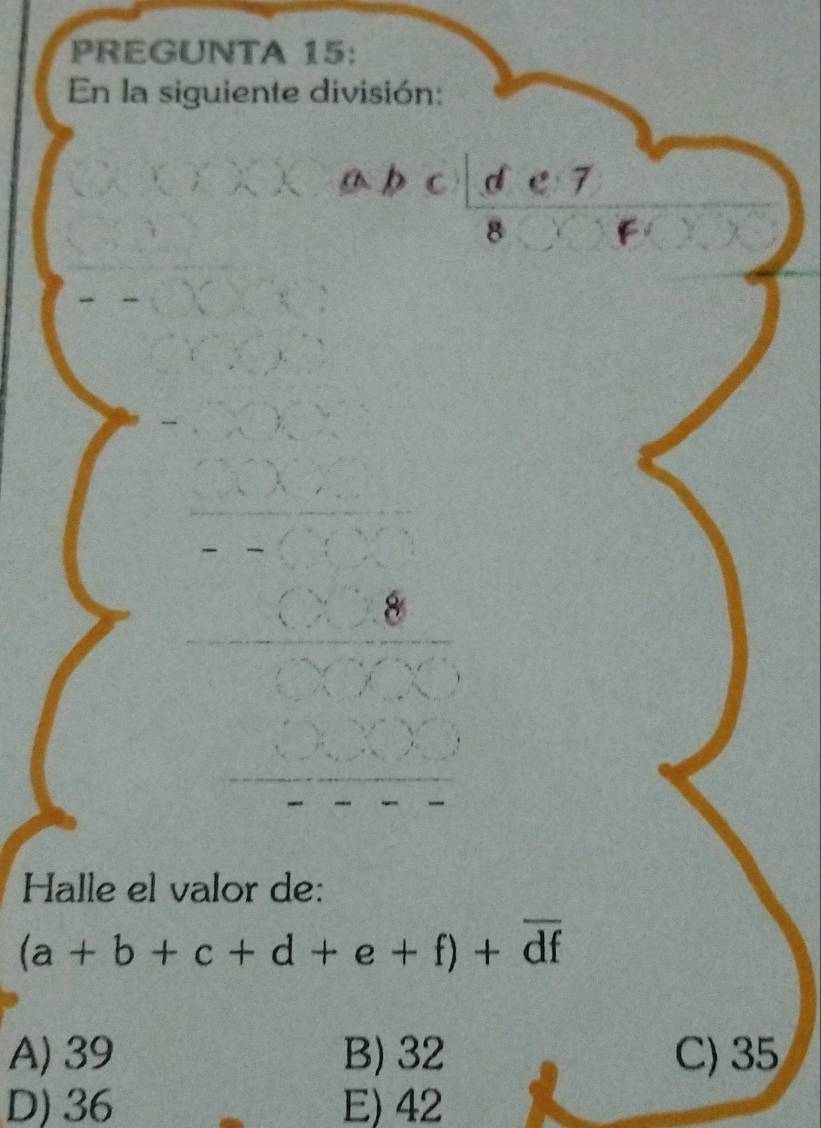 PREGUNTA 15:
En la siguiente división:
a b c d e 7
8 F
- -
-
- -
8
- - - -
Halle el valor de:
(a + b + c + d + e + f) + d̅f̅
A) 39 B) 32 C) 35
D) 36 E) 42